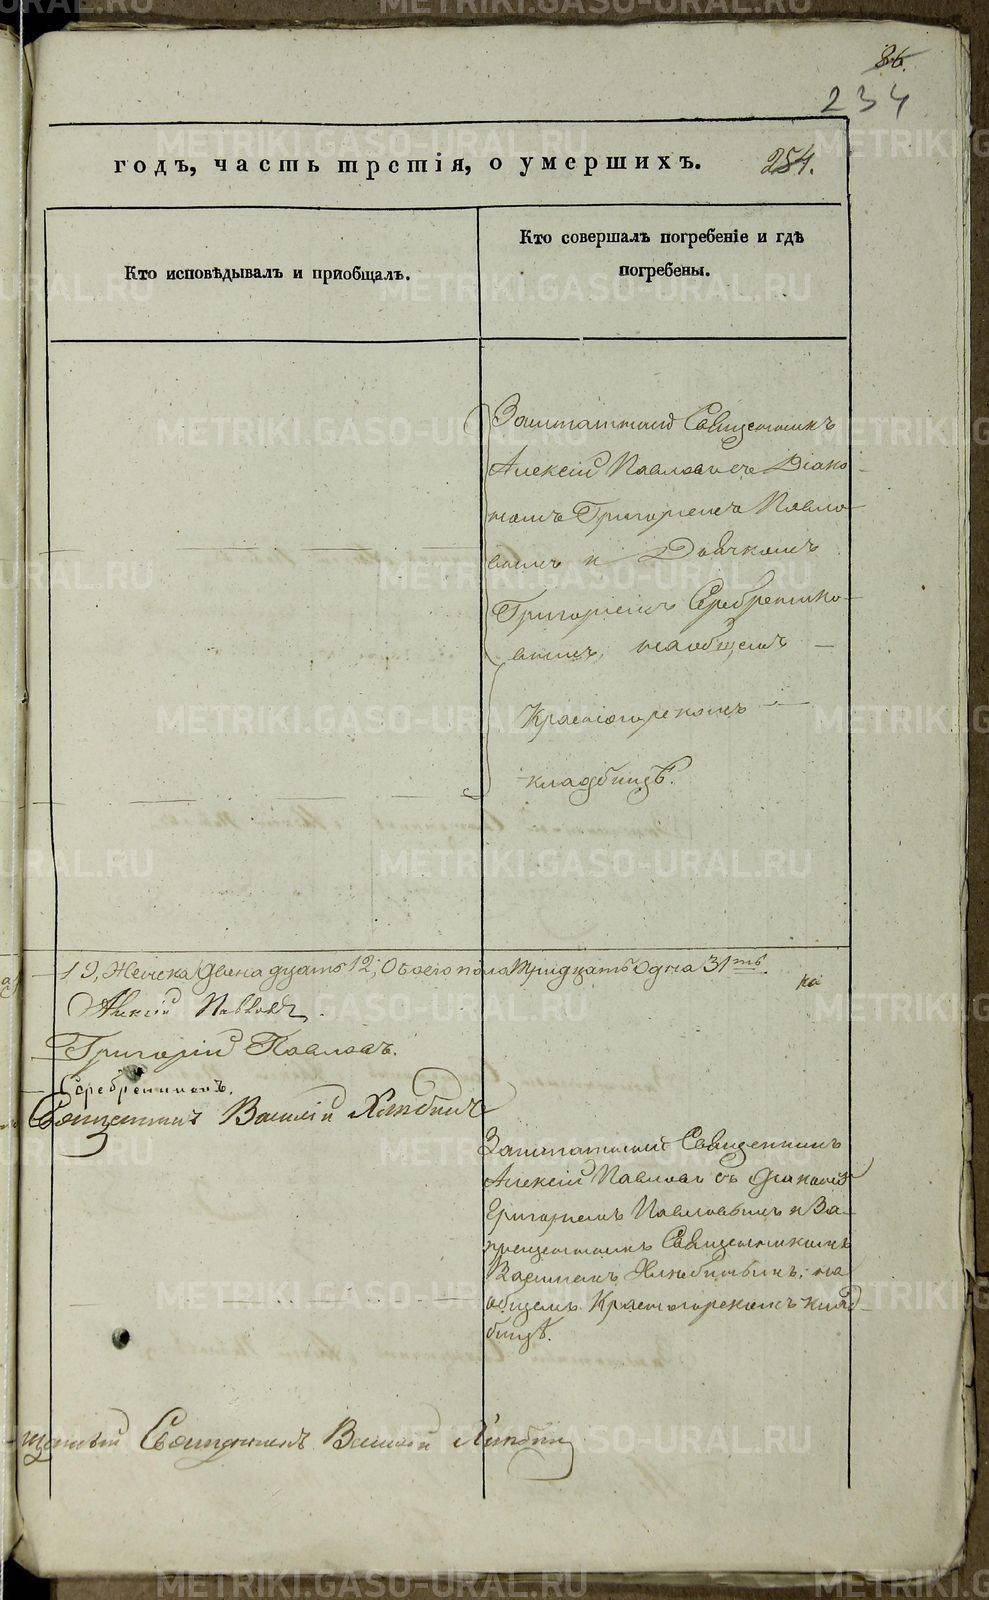 86.
234
годъ, часть третія, о умершихъ. 254.
Кто исповѣдывалъ и пріобщалъ.
Кто совершалъ погребеніе и гдѣ
погребены.
Заштатный Священникъ
Алексій Павловъ съ Діако-
номъ Григоріемъ Павло-
вымъ и Дьячкомъ
Григоріемъ Серебренико-
вымъ, на общемъ
Красногорскомъ
кладбищѣ.
19, Женска двенадцать 12, Обоего пола Тридцать Одна 31.
Алексій Павловъ.
Григорій Павловъ.
Серебрениковъ.
Священникъ Василій Хлѣбинъ
Заштатный Священникъ
Алексій Павловъ съ Діакономъ
Григоріемъ Павловымъ и За-
прещеннымъ Священникомъ
Василіемъ, на
общемъ Красногорскомъ клад-
бищѣ.
Священникъ Василій Хлѣбинъ
METRIKI.GASO-URAL.RU